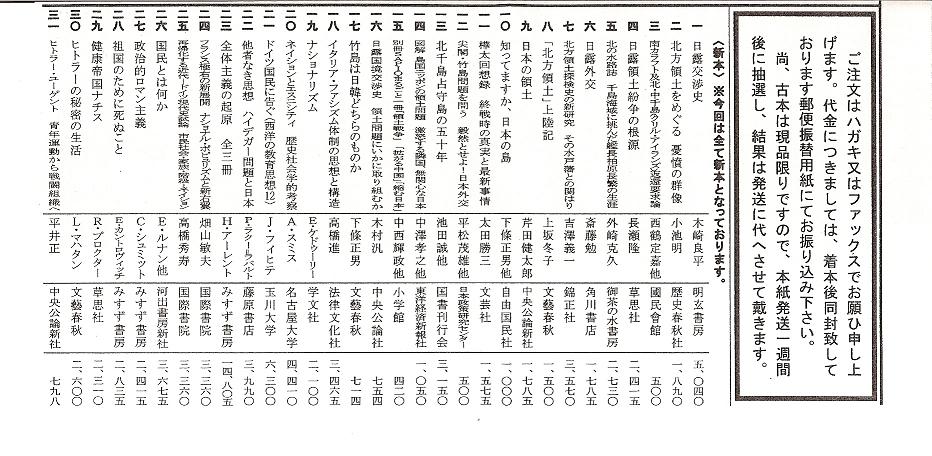 ご注文はハガキ又はファックスでお願ひ申し上
げます。代金につきましては、着本後同封致して
おります郵便振替用紙にてお振り込み下さい。
尚、古本は現品限りですので、本紙発送一週間
後に抽選し、結果は発送に代へさせて戴きます。
〈新本〉※今回は全て新本となっております。
一 日露交渉史 木崎良平 明玄書房 五、〇四〇
二 北方領土をめぐる 憂憤の群像 小池明 歴史春秋社 一、八九〇
三 西鶴定嘉他 國民會館 五〇〇
四 日露領土紛争の根源 長瀬隆 草思社 二、九四〇
五 北の水路誌 千島海域に挑んだ艦長柏原長繁の生涯 外崎克久 御茶の水書房 二、七三〇
六 日露外交 斎藤勉 角川書店 五〇〇
七 北方領土探検史の新研究 その水戸藩との関はり 吉澤義一 錦正社 三、五七〇
八 「北方領土」上陸記 上坂冬子 文藝春秋 一、六〇〇
九 日本の領土 芹田健太郎 中央公論社
一〇 知ってますか、日本の島 下條正男他 自由国民社
一一 樺太回想録 終戦時の真実と最新事情 太田勝三 文芸社 一、五七五
一二 尖閣・竹島問題を問う 毅然とせよ!日本外交 平松茂雄他 日本政策研究センター 五〇〇
一三 北千島占守島の五十年 池田誠他 国書刊行会 三、一五〇
一四 図解 島国ニッポンの領土問題 激怒する隣国、無関心な日本 中澤孝之他 東洋経済新報社 一、〇五〇
一五 中西輝政他 小学館 四二〇
一六 日露国境交渉史 領土問題にいかに取り組むか 木村汎 中央公論社 七五四
一七 竹島は日韓どちらのものか 下條正男 文藝春秋 七一四
一八 イタリア・ファシズム体制の思想と構造 高橋進 法律文化社 三、四六五
一九 ナショナリズム E・ケドゥーリー 学文社 二、一〇〇
二〇 ネイションとエスニシティ 歴史社会学的考察 A・スミス 名古屋大学 四、四一〇
二一 ドイツ国民に告ぐ(西洋の教育思想12) J・フィヒテ 玉川大学 六、三〇〇
二二 他者なき思想 ハイデガー問題と日本 P・ラクー=ラバルト 藤原書店 三、九九〇
二三 全体主義の起原 全三冊 H・アーレント みすず書房 一四、八〇五
二四 フランス極右の新展開 ナショナル・ポピュリズムと新右翼 畑山敏夫 国際書院 三、三六〇
二五 高橋秀寿 国際書院 三、三六〇
二六 国民とは何か E・ルナン他 河出書房新社 三、六七五
二七 政治的ロマン主義 C・シュミット みすず書房 二、四一五
二八 祖国のために死ぬこと E・カントロヴィッチ みすず書房 二、八三五
二九 健康帝国ナチス R・プロクター 草思社 二、三一〇
三〇 ヒトラーの秘密の生活 L・マハタン 文藝春秋 二、六〇〇
三一 ヒトラー・ユーゲント 青年運動から戦闘組織へ 平井正 中央公論新社 七九八